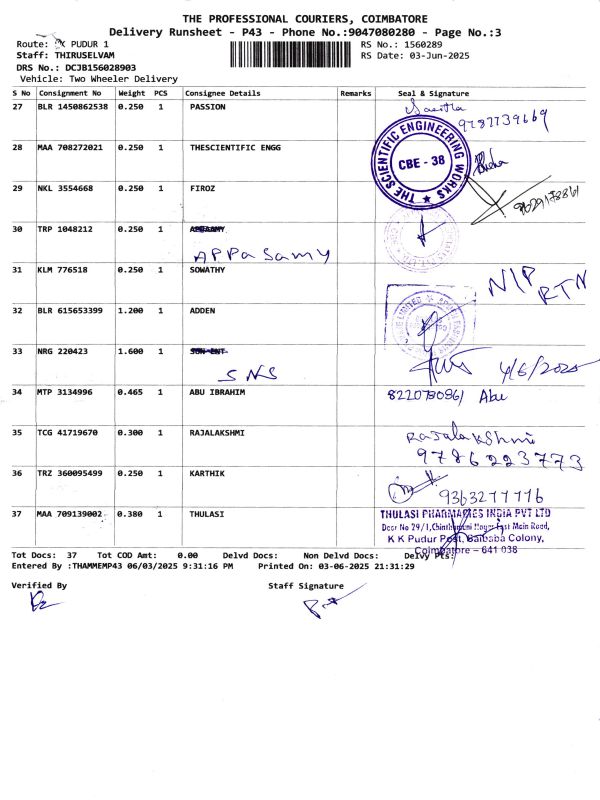 THE PROFESSIONAL COURIERS, COIMBATORE
Delivery Runsheet - P43 - Phone No.:9047080280 - Page No.:3
Route: K PUDUR 1 RS No.: 1560289
Staff: THIRUSELVAM RS Date: 03-Jun-2025
DRS No.: DCJB156028903
Vehicle: Two Wheeler Delivery
S No Consignment No Weight PCS Consignee Details Remarks Seal & Signature
27 BLR 1450862538 0.250 1 PASSION
9787739669
28 MAA 708272021 0.250 1 THESCIENTIFIC ENGG
THE SCIENTIFIC ENGINEERING WORKS ★
CBE - 38
29 NKL 3554668 0.250 1 FIROZ
9629178861
30 TRP 1048212 0.250 1
APPaSamy
31 KLM 776518 0.250 1 SOWATHY NIP RTN
32 BLR 615653399 1.200 1 ADDEN
33 NRG 220423 1.600 1
SNS 4/6/2025
34 MTP 3134996 0.465 1 ABU IBRAHIM
Abu
35 TCG 41719670 0.300 1 RAJALAKSHMI Rajalakshmi
9786223773
36 TRZ 360095499 0.250 1 KARTHIK
9363277776
37 MAA 709139002 0.380 1 THULASI
THULASI PHARMACIES INDIA PVT LTD
Door No 29/1, Chinthamani Nagar East Main Road,
K K Pudur Post, Saibaba Colony,
Coimbatore - 641 038
Tot Docs: 37 Tot COD Amt: 0.00 Delvd Docs: Non Delvd Docs: Delvy Pts:
Entered By :THAMMEMP43 06/03/2025 9:31:16 PM Printed On: 03-06-2025 21:31:29
Verified By Staff Signature